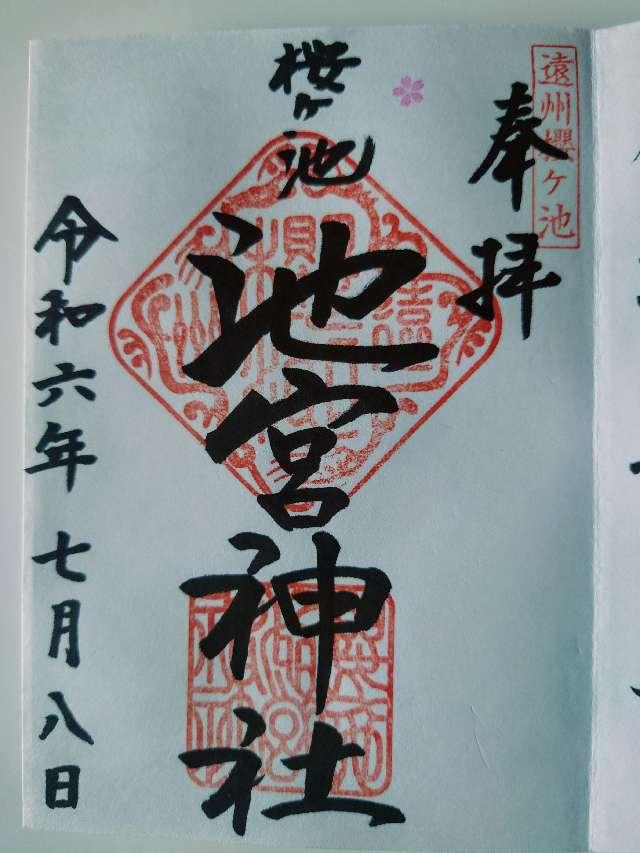 遠州櫻ヶ池
奉拝
桜ヶ池
池宮神社
令和六年七月八日